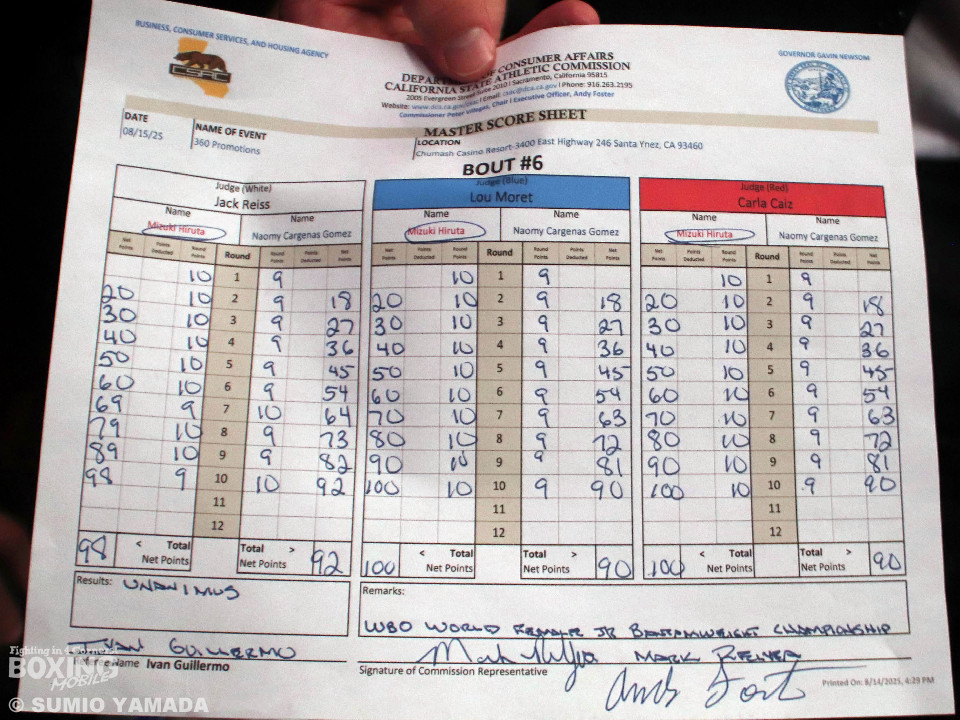 BUSINESS, CONSUMER SERVICES, AND HOUSING AGENCY
GOVERNOR GAVIN NEWSOM
CSAC
DEPARTMENT OF CONSUMER AFFAIRS
CALIFORNIA STATE ATHLETIC COMMISSION
2005 Evergreen Street Suite 2010 | Sacramento, California 95815
Website: www.dca.ca.gov/csac | Email: csac@dca.ca.gov | Phone: 916.263.2195
Commissioner Peter Villegas, Chair | Executive Officer, Andy Foster
MASTER SCORE SHEET
DATE NAME OF EVENT LOCATION
08/15/25 360 Promotions Chumash Casino Resort-3400 East Highway 246 Santa Ynez, CA 93460
BOUT #6
Judge (White) Judge (Blue) Judge (Red)
Jack Reiss Lou Moret Carla Caiz
Name Name Name Name Name Name
Mizuki Hiruta Naomy Cargenas Gomez Mizuki Hiruta Naomy Cargenas Gomez Mizuki Hiruta Naomy Cargenas Gomez
Net Points Points Deducted Round Points Round Round Points Points Deducted Net Points Net Points Points Deducted Round Points Round Round Points Points Deducted Net Points Net Points Points Deducted Round Points Round Round Points Points Deducted Net Points
10 1 9 10 1 9 10 1 9
20 10 2 9 18 20 10 2 9 18 20 10 2 9 18
30 10 3 9 27 30 10 3 9 27 30 10 3 9 27
40 10 4 9 36 40 10 4 9 36 40 10 4 9 36
50 10 5 9 45 50 10 5 9 45 50 10 5 9 45
60 10 6 9 54 60 10 6 9 54 60 10 6 9 54
69 9 7 10 64 70 10 7 9 63 70 10 7 9 63
79 10 8 9 73 80 10 8 9 72 80 10 8 9 72
89 10 9 9 82 90 10 9 9 81 90 10 9 9 81
98 9 10 10 92 100 10 10 9 90 100 10 10 9 90
11 11 11
12 12 12
98 < Total Net Points Total > Net Points 92 100 < Total Net Points Total > Net Points 90 100 < Total Net Points Total > Net Points 90
Results: UNANIMUS
Remarks:
WBO WORLD FEMALE JR BANTAMWEIGHT CHAMPIONSHIP
IVAN GUILLERMO
Name Ivan Guillermo
MARK RELYEA
Signature of Commission Representative
Andy Foster
Printed On: 8/14/2025, 4:29 PM
Fighting in 4 Corners
BOXING
MOBILE
© SUMIO YAMADA